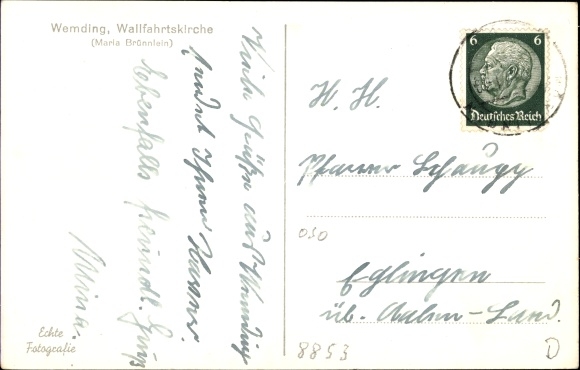 Wemding, Wallfahrtskirche
(Maria Brünnlein)
Viele Grüße aus Wemding
sendet Ihnen
Ebenfalls freundl. Grüße
Echte
Fotografie
6 6
Deutsches Reich
H. H.
Pfarrer Schaugg
Eglingen
üb. Aalen-Land.
8853
D